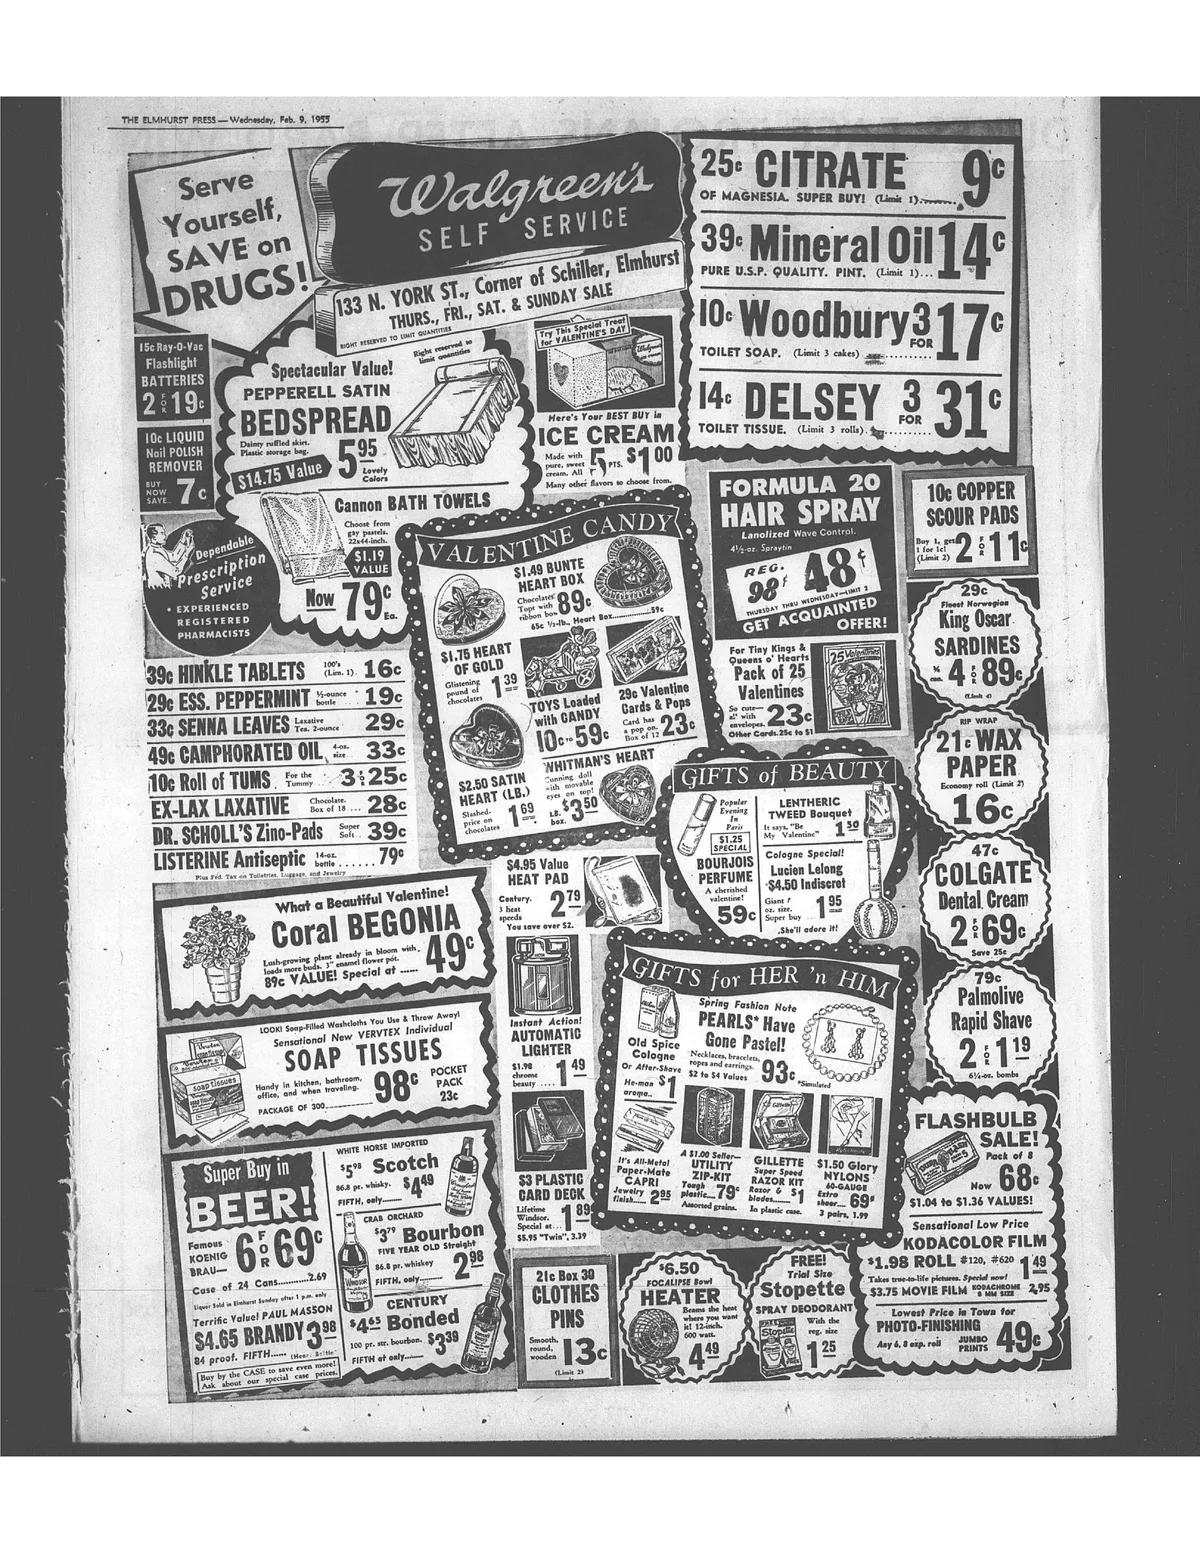 THE ELMHURST PRESS — Wednesday, Feb. 9, 1955
Serve
Yourself,
SAVE on
DRUGS!
Walgreen's
SELF SERVICE
133 N. YORK ST., Corner of Schiller, Elmhurst
THURS., FRI., SAT. & SUNDAY SALE
RIGHT RESERVED TO LIMIT QUANTITIES
25c CITRATE 9c
OF MAGNESIA. SUPER BUY! (Limit 1)
39c Mineral Oil 14c
PURE U.S.P. QUALITY. PINT. (Limit 1)...
10c Woodbury 3 FOR 17c
TOILET SOAP. (Limit 3 cakes)
14c DELSEY 3 FOR 31c
TOILET TISSUE. (Limit 3 rolls)
15c Ray-O-Vac
Flashlight
BATTERIES
2 FOR 19c
10c LIQUID
Nail POLISH
REMOVER
BUY
NOW
SAVE.. 7c
Dependable
Prescription
Service
• EXPERIENCED
REGISTERED
PHARMACISTS
Right reserved to
limit quantities
Spectacular Value!
PEPPERELL SATIN
BEDSPREAD
Dainty ruffled skirt.
Plastic storage bag.
5 95
$14.75 Value
Lovely
Colors
Cannon BATH TOWELS
Choose from
gay pastels.
22x44-inch.
$1.19
VALUE
Now 79c Ea.
Try This Special Treat
for VALENTINE'S DAY
Walgreen
Here's Your BEST BUY in
ICE CREAM
Made with
pure, sweet
cream. All
5 PTS. $1 00
Many other flavors to choose from.
39c HINKLE TABLETS 100's (Lim. 1) 16c
29c ESS. PEPPERMINT ½-ounce bottle 19c
33c SENNA LEAVES Laxative Tea. 2-ounce 29c
49c CAMPHORATED OIL 4-oz. size 33c
10c Roll of TUMS For the Tummy 3 FOR 25c
EX-LAX LAXATIVE Chocolate. Box of 18 ... 28c
DR. SCHOLL'S Zino-Pads Super Soft 39c
LISTERINE Antiseptic 14-oz. bottle ...... 79c
Plus Fed. Tax on Toiletries, Luggage, and Jewelry
VALENTINE CANDY
$1.49 BUNTE
HEART BOX
Chocolates
Topt with
ribbon bow 89c
65c ½-lb., Heart Box 59c
$1.75 HEART
OF GOLD
Glistening
pound of
chocolates
1 39
TOYS Loaded
with CANDY
10c TO 59c
29c Valentine
Cards & Pops
Card has
a pop on.
Box of 12 23c
$2.50 SATIN
HEART (LB.)
Slashed-
price on
chocolates
1 69
WHITMAN'S HEART
Cunning doll
with movable
eyes on top!
LB.
box. $3 50
FORMULA 20
HAIR SPRAY
Lanolized Wave Control.
4½-oz. Spraytin
REG.
98¢ 48¢
THURSDAY THRU WEDNESDAY—LIMIT 2
GET ACQUAINTED
OFFER!
For Tiny Kings &
Queens o' Hearts
Pack of 25
Valentines
So cute—
al' with
envelopes. 23c
Other Cards. 25c to $1
25 Valentines
10c COPPER
SCOUR PADS
Buy 1, get
1 for 1c!
(Limit 2) 2 FOR 11c
29c
Finest Norwegian
King Oscar
SARDINES
¼
can. 4 FOR 89c
(Limit 4)
RIP WRAP
21c WAX
PAPER
Economy roll (Limit 2)
16c
47c
COLGATE
Dental Cream
2 FOR 69c
Save 25c
79c
Palmolive
Rapid Shave
2 FOR 1 19
6½-oz. bombs
GIFTS of BEAUTY
Popular
Evening
In
Paris
$1.25
SPECIAL
BOURJOIS
PERFUME
A cherished
valentine!
59c
LENTHERIC
TWEED Bouquet
It says, "Be
My Valentine" 1 50
Cologne Special!
Lucien Lelong
$4.50 Indiscret
Giant
oz. size.
Super buy 1 95
She'll adore it!
$4.95 Value
HEAT PAD
Century.
3 heat
speeds 2 79
You save over $2.
Instant Action!
AUTOMATIC
LIGHTER
$1.98
chrome
beauty .... 1 49
$3 PLASTIC
CARD DECK
Lifetime
Windsor.
Special at... 1 89
$5.95 "Twin", 3.39
What a Beautiful Valentine!
Coral BEGONIA
Lush-growing plant already in bloom with
loads more buds. 3" enamel flower pot.
89c VALUE! Special at ...... 49c
LOOK! Soap-Filled Washcloths You Use & Throw Away!
Sensational New VERVTEX Individual
SOAP TISSUES
Handy in kitchen, bathroom,
office, and when traveling.
PACKAGE OF 300 98c
POCKET
PACK
23c
SOAP TISSUES
GIFTS for HER 'n HIM
Old Spice
Cologne
Or After-Shave
He-man
aroma.. $1
Spring Fashion Note
PEARLS* Have
Gone Pastel!
Necklaces, bracelets,
ropes and earrings.
$2 to $4 Values 93c
*Simulated
It's All-Metal
Paper-Mate
CAPRI
Jewelry
finish 2 95
A $1.00 Seller—
UTILITY
ZIP-KIT
Tough
plastic.... 79c
Assorted grains.
Gillette
GILLETTE
Super Speed
RAZOR KIT
Razor &
blades $1
In plastic case.
$1.50 Glory
NYLONS
60-GAUGE
Extra
sheer... 69¢
3 pairs, 1.99
Super Buy in
BEER!
Famous
KOENIG
BRAU— 6 FOR 69c
Case of 24 Cans 2.69
Liquor Sold in Elmhurst Sunday after 1 p.m. only
Terrific Value! PAUL MASSON
$4.65 BRANDY 3 98
84 proof. FIFTH
Buy by the CASE to save even more!
Ask about our special case prices.
WHITE HORSE IMPORTED
$5 98 Scotch
86.8 pr. whisky. $4 49
FIFTH, only
CRAB ORCHARD
$3 79 Bourbon
FIVE YEAR OLD Straight
86.8 pr. whiskey 2 98
FIFTH, only
CENTURY
$4 65 Bonded
100 pr. str. bourbon. $3 39
FIFTH at only
21c Box 30
CLOTHES
PINS
Smooth,
round,
wooden 13c
(Limit 2)
$6.50
FOCALIPSE Bowl
HEATER
Beams the heat
where you want
it! 12-inch.
600 watt.
4 49
FREE!
Trial Size
Stopette
SPRAY DEODORANT
With the
reg. size
1 25
FREE
Stopette
FLASHBULB
SALE!
Pack of 8
Now 68c
$1.04 to $1.36 VALUES!
Sensational Low Price
KODACOLOR FILM
$1.98 ROLL #120, #620 1 49
Takes true-to-life pictures. Special now!
$3.75 MOVIE FILM KODACHROME 8 MM SIZE 2.95
Lowest Price in Town for
PHOTO-FINISHING
Any 6, 8 exp. roll JUMBO PRINTS 49c